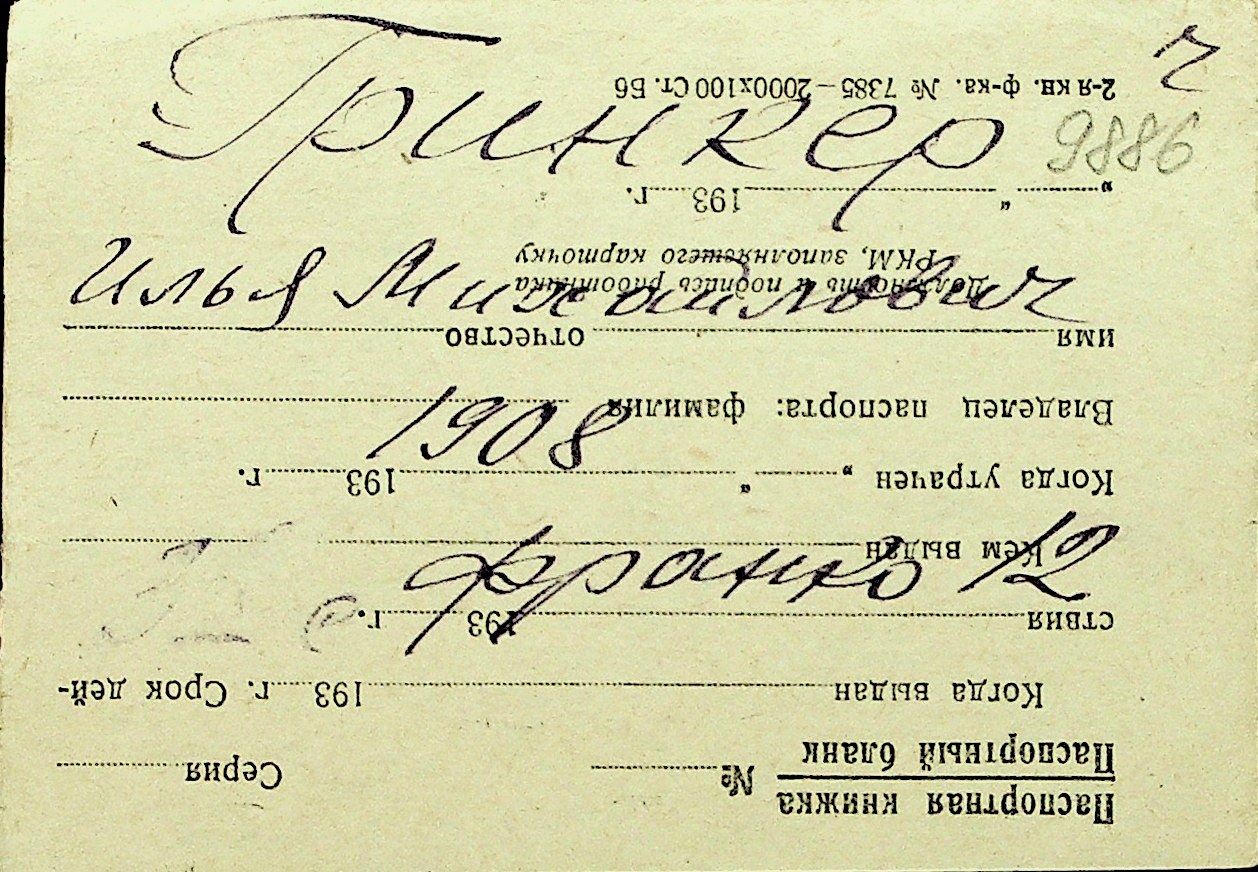 Гринкер
ч
9886
Илья Михайлович
1908
Франко 12
Паспортная книжка
Паспортный бланк
№ Серия
Когда выдан 193 г. Срок дей-
ствия 193 г.
Кем выдан
Когда утрачен „ “ 193 г.
Владелец паспорта: фамилия
имя отчество
Должность и подпись работника
РКМ, заполнявшего карточку
„ “ 193 г.
2-я кн. ф-ка. № 7385—2000х100 Ст. Б6